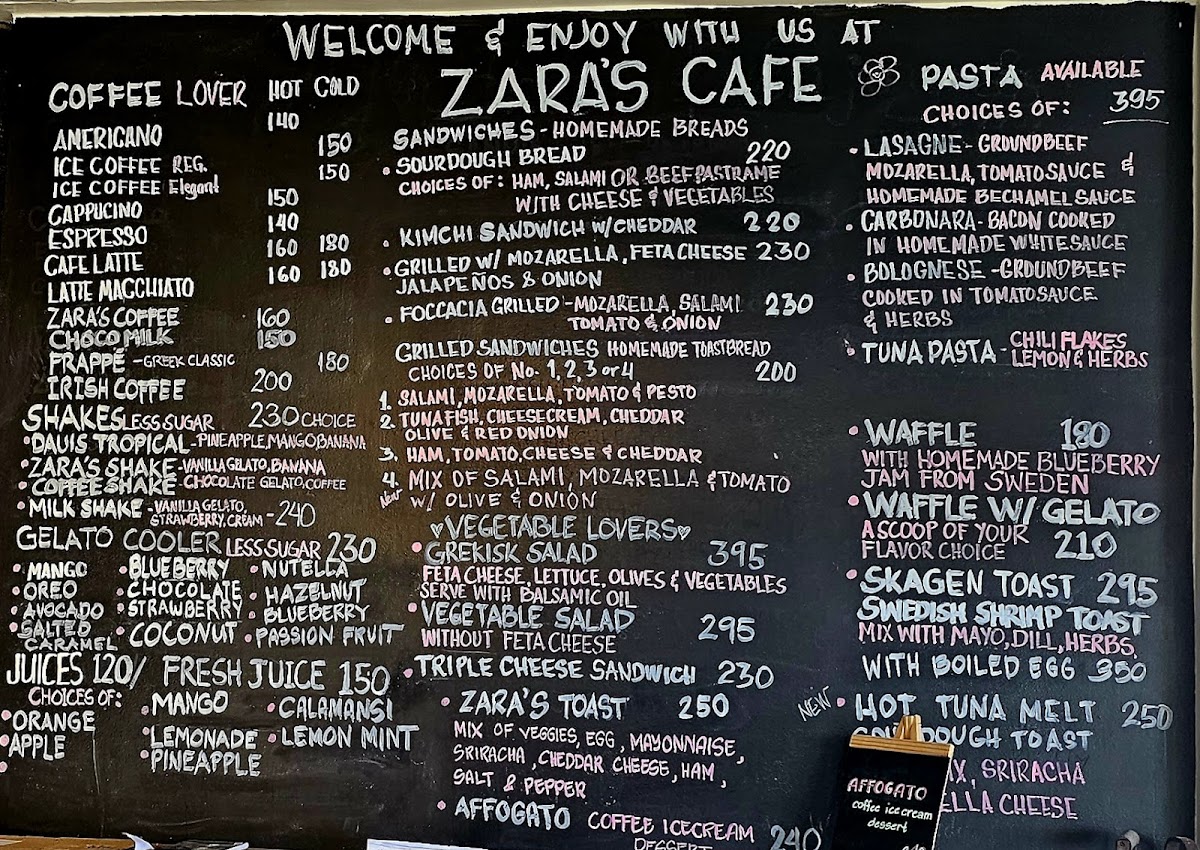 WELCOME & ENJOY WITH US AT
ZARA'S CAFE
COFFEE LOVER HOT COLD
AMERICANO 140
ICE COFFEE REG. 150
ICE COFFEE Elegant 150
CAPPUCINO 150
ESPRESSO 140
CAFE LATTE 160 180
LATTE MACCHIATO 160 180
ZARA'S COFFEE 160
CHOCO MILK 150
FRAPPÉ - GREEK CLASSIC 180
IRISH COFFEE 200
SHAKES LESS SUGAR 230 CHOICE
• DAVIS TROPICAL - PINEAPPLE, MANGO, BANANA
• ZARA'S SHAKE - VANILLA GELATO, BANANA
• COFFEE SHAKE - CHOCOLATE GELATO, COFFEE
• MILK SHAKE - VANILLA GELATO,
STRAWBERRY, CREAM - 240
GELATO COOLER LESS SUGAR 230
• MANGO • BLUEBERRY • NUTELLA
• OREO • CHOCOLATE • HAZELNUT
• AVOCADO • STRAWBERRY • BLUEBERRY
• SALTED CARAMEL • COCONUT • PASSION FRUIT
JUICES 120/ FRESH JUICE 150
CHOICES OF:
• ORANGE • MANGO • CALAMANSI
• APPLE • LEMONADE • LEMON MINT
• PINEAPPLE
SANDWICHES - HOMEMADE BREADS
• SOURDOUGH BREAD 220
CHOICES OF: HAM, SALAMI OR BEEF PASTRAME
WITH CHEESE & VEGETABLES
• KIMCHI SANDWICH W/CHEDDAR 220
• GRILLED W/ MOZARELLA, FETA CHEESE 230
JALAPEÑOS & ONION
• FOCCACIA GRILLED - MOZARELLA, SALAMI 230
TOMATO & ONION
GRILLED SANDWICHES HOMEMADE TOASTBREAD
CHOICES OF No. 1, 2, 3 or 4 200
1. SALAMI, MOZARELLA, TOMATO & PESTO
2. TUNAFISH, CHEESECREAM, CHEDDAR
OLIVE & RED ONION
3. HAM, TOMATO, CHEESE & CHEDDAR
4. MIX OF SALAMI, MOZARELLA & TOMATO
New W/ OLIVE & ONION
♥VEGETABLE LOVERS♥
• GREKISK SALAD 395
FETA CHEESE, LETTUCE, OLIVES & VEGETABLES
SERVE WITH BALSAMIC OIL
• VEGETABLE SALAD 295
WITHOUT FETA CHEESE
• TRIPLE CHEESE SANDWICH 230
• ZARA'S TOAST 250
MIX OF VEGGIES, EGG, MAYONNAISE,
SRIRACHA, CHEDDAR CHEESE, HAM,
SALT & PEPPER
• AFFOGATO COFFEE ICECREAM 240
DESSERT
PASTA AVAILABLE
CHOICES OF: 395
• LASAGNE - GROUNDBEEF
MOZARELLA, TOMATO SAUCE &
HOMEMADE BECHAMEL SAUCE
• CARBONARA - BACON COOKED
IN HOMEMADE WHITE SAUCE
• BOLOGNESE - GROUNDBEEF
COOKED IN TOMATO SAUCE
& HERBS
• TUNA PASTA - CHILI FLAKES
LEMON & HERBS
• WAFFLE 180
WITH HOMEMADE BLUEBERRY
JAM FROM SWEDEN
• WAFFLE W/ GELATO
A SCOOP OF YOUR
FLAVOR CHOICE 210
• SKAGEN TOAST 295
SWEDISH SHRIMP TOAST
MIX WITH MAYO, DILL, HERBS.
WITH BOILED EGG 350
NEW • HOT TUNA MELT 250
TOAST
SRIRACHA
CHEESE
AFFOGATO
coffee ice cream
dessert